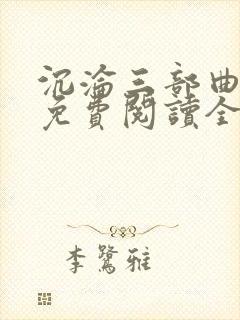 沉淪三部曲
免費閱讀全
李鷺雅